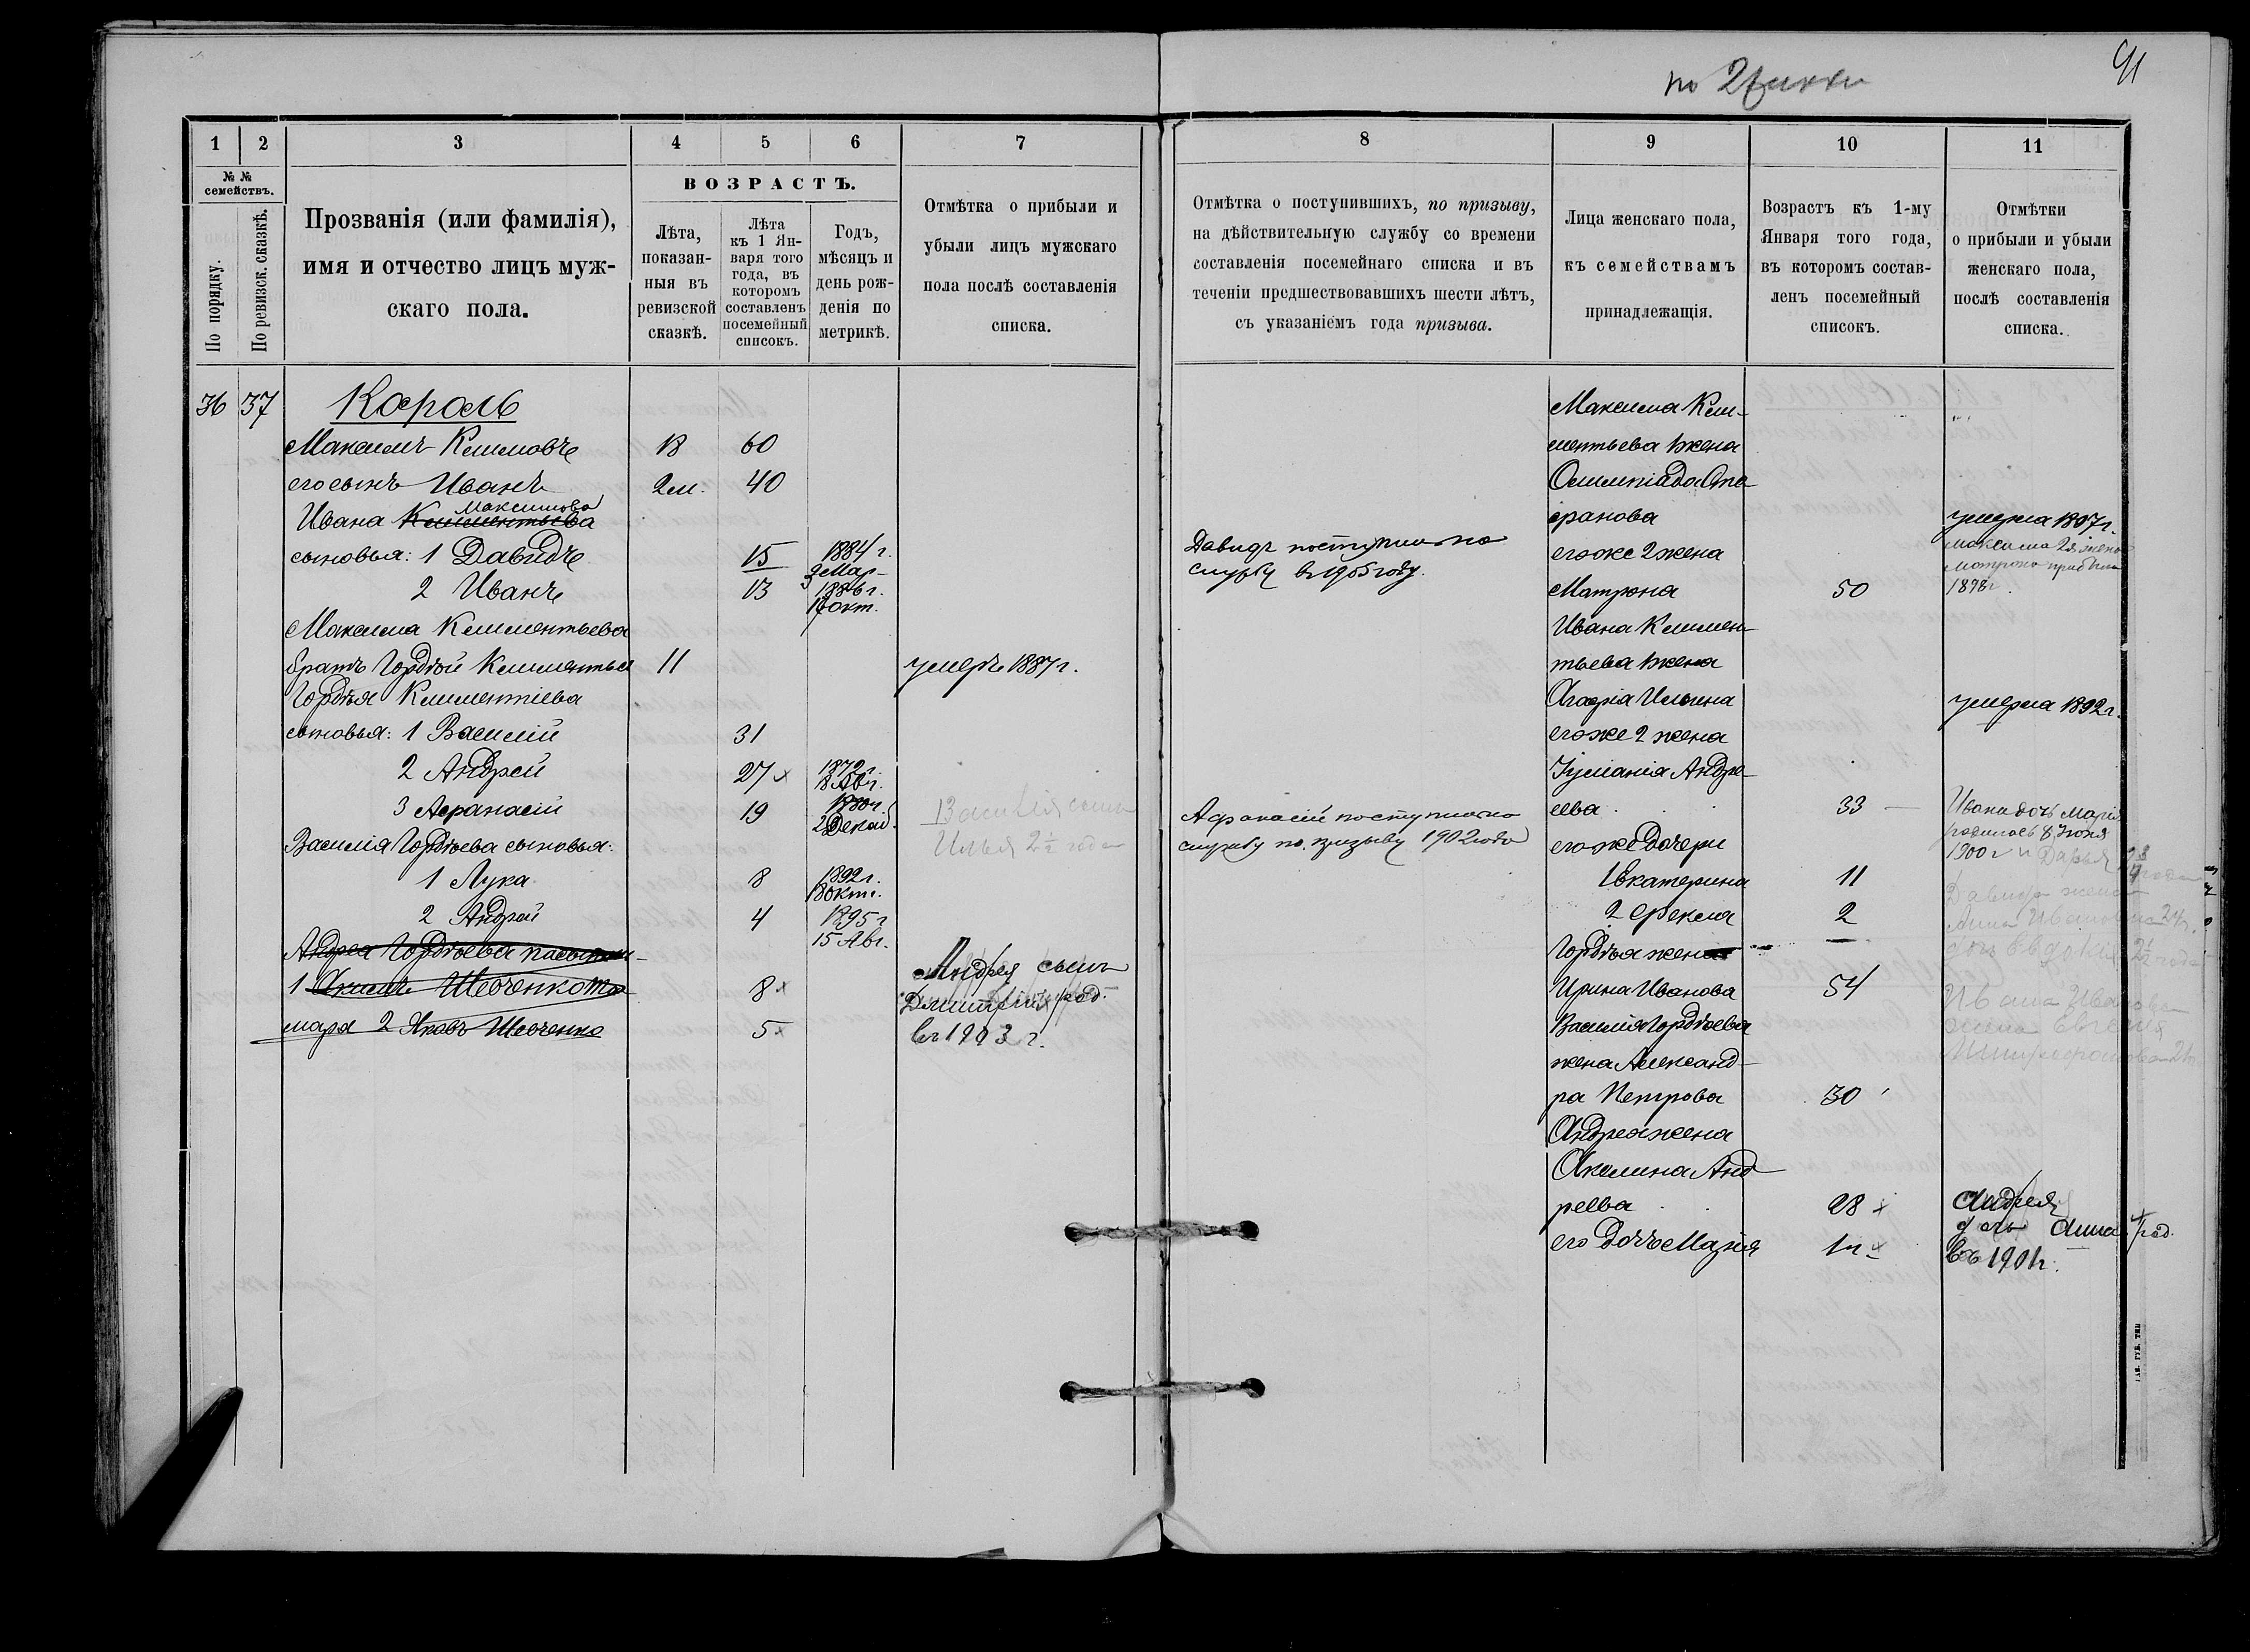 91
1
2
3
4
5
6
7
№ №
семействъ.
По порядку.
По ревизск. сказкѣ.
Прозванія (или фамилія),
имя и отчество лицъ муж-
скаго пола.
ВОЗРАСТЪ.
Лѣта,
показан-
ныя въ
ревизской
сказкѣ.
Лѣта
къ 1 Ян-
варя того
года, въ
которомъ
составленъ
посемейный
списокъ.
Годъ,
мѣсяцъ и
день рож-
денія по
метрикѣ.
Отмѣтка о прибыли и
убыли лицъ мужскаго
пола послѣ составленія
списка.
36 37 Король
Максимъ Климовъ 13 60
его сынъ Иванъ 2м. 40
Максимова
Ивана Климентьева
сыновья: 1 Давидъ 15 1884 г.
2 Мар-
2 Иванъ 13 1886 г.
окт.
Максима Климентьева
братъ Гордѣй Климентьев 11 умеръ 1887 г.
Гордѣя Климентіева
сыновья: 1 Василій 31
2 Андрей 27 × 1872 г.
18 Авг.
3 Афанасій 19 1880 г.
2 Декаб.
Василія сынъ
Илья 2½ года
Василія Гордѣева сыновья:
1 Лука 8 1892 г.
18 Окт.
2 Андрей 4 1895 г
15 Авг.
Андрея Гордѣева пасынки
1 Акимъ Шевченко 8 ×
2 Яковъ Шевченко 5 ×
Андрея сынъ
Димитрій род.
въ 1903 г.
8
9
10
11
Отмѣтка о поступившихъ, по призыву,
на дѣйствительную службу со времени
составленія посемейнаго списка и въ
теченіи предшествовавшихъ шести лѣтъ,
съ указаніемъ года призыва.
Лица женскаго пола,
къ семействамъ
принадлежащія.
Возрастъ къ 1-му
Января того года,
въ которомъ состав-
ленъ посемейный
списокъ.
Отмѣтки
о прибыли и убыли
женскаго пола,
послѣ составленія
списка.
Давидъ поступилъ на
службу въ 1905 году.
Афанасій поступилъ на
службу по призыву 1902 года
Максима Кли-
ментьева жена
Олимпіада Ота
фанова умерла 1897 г.
его же 2 жена
Матрона 50
Максима 2я жена
Матрона прибыла
1898 г.
Ивана Климен-
тьева жена
Агафія Ильина умерла 1892 г.
его же 2 жена
Іуліанія Андре-
ева 33
Ивана дочь Марія
родилась 8 Іюля
1900 г и Дарья
его же дочери
1 Екатерина 11
2 Фекла 2
Давида жена
Анна Ивановна 24
дочь Евдокія 2½ года
Гордѣя жена
Ирина Иванова 54
Ивана Иванова
жена Евгенія
Митрофановна 21
Василія Гордѣева
жена Александ-
ра Петрова 30
Андрея жена
Акилина Анд
реева 28 ×
его дочь Марія 1 г ×
Андрея
дочь Анна род.
въ 1901 г.